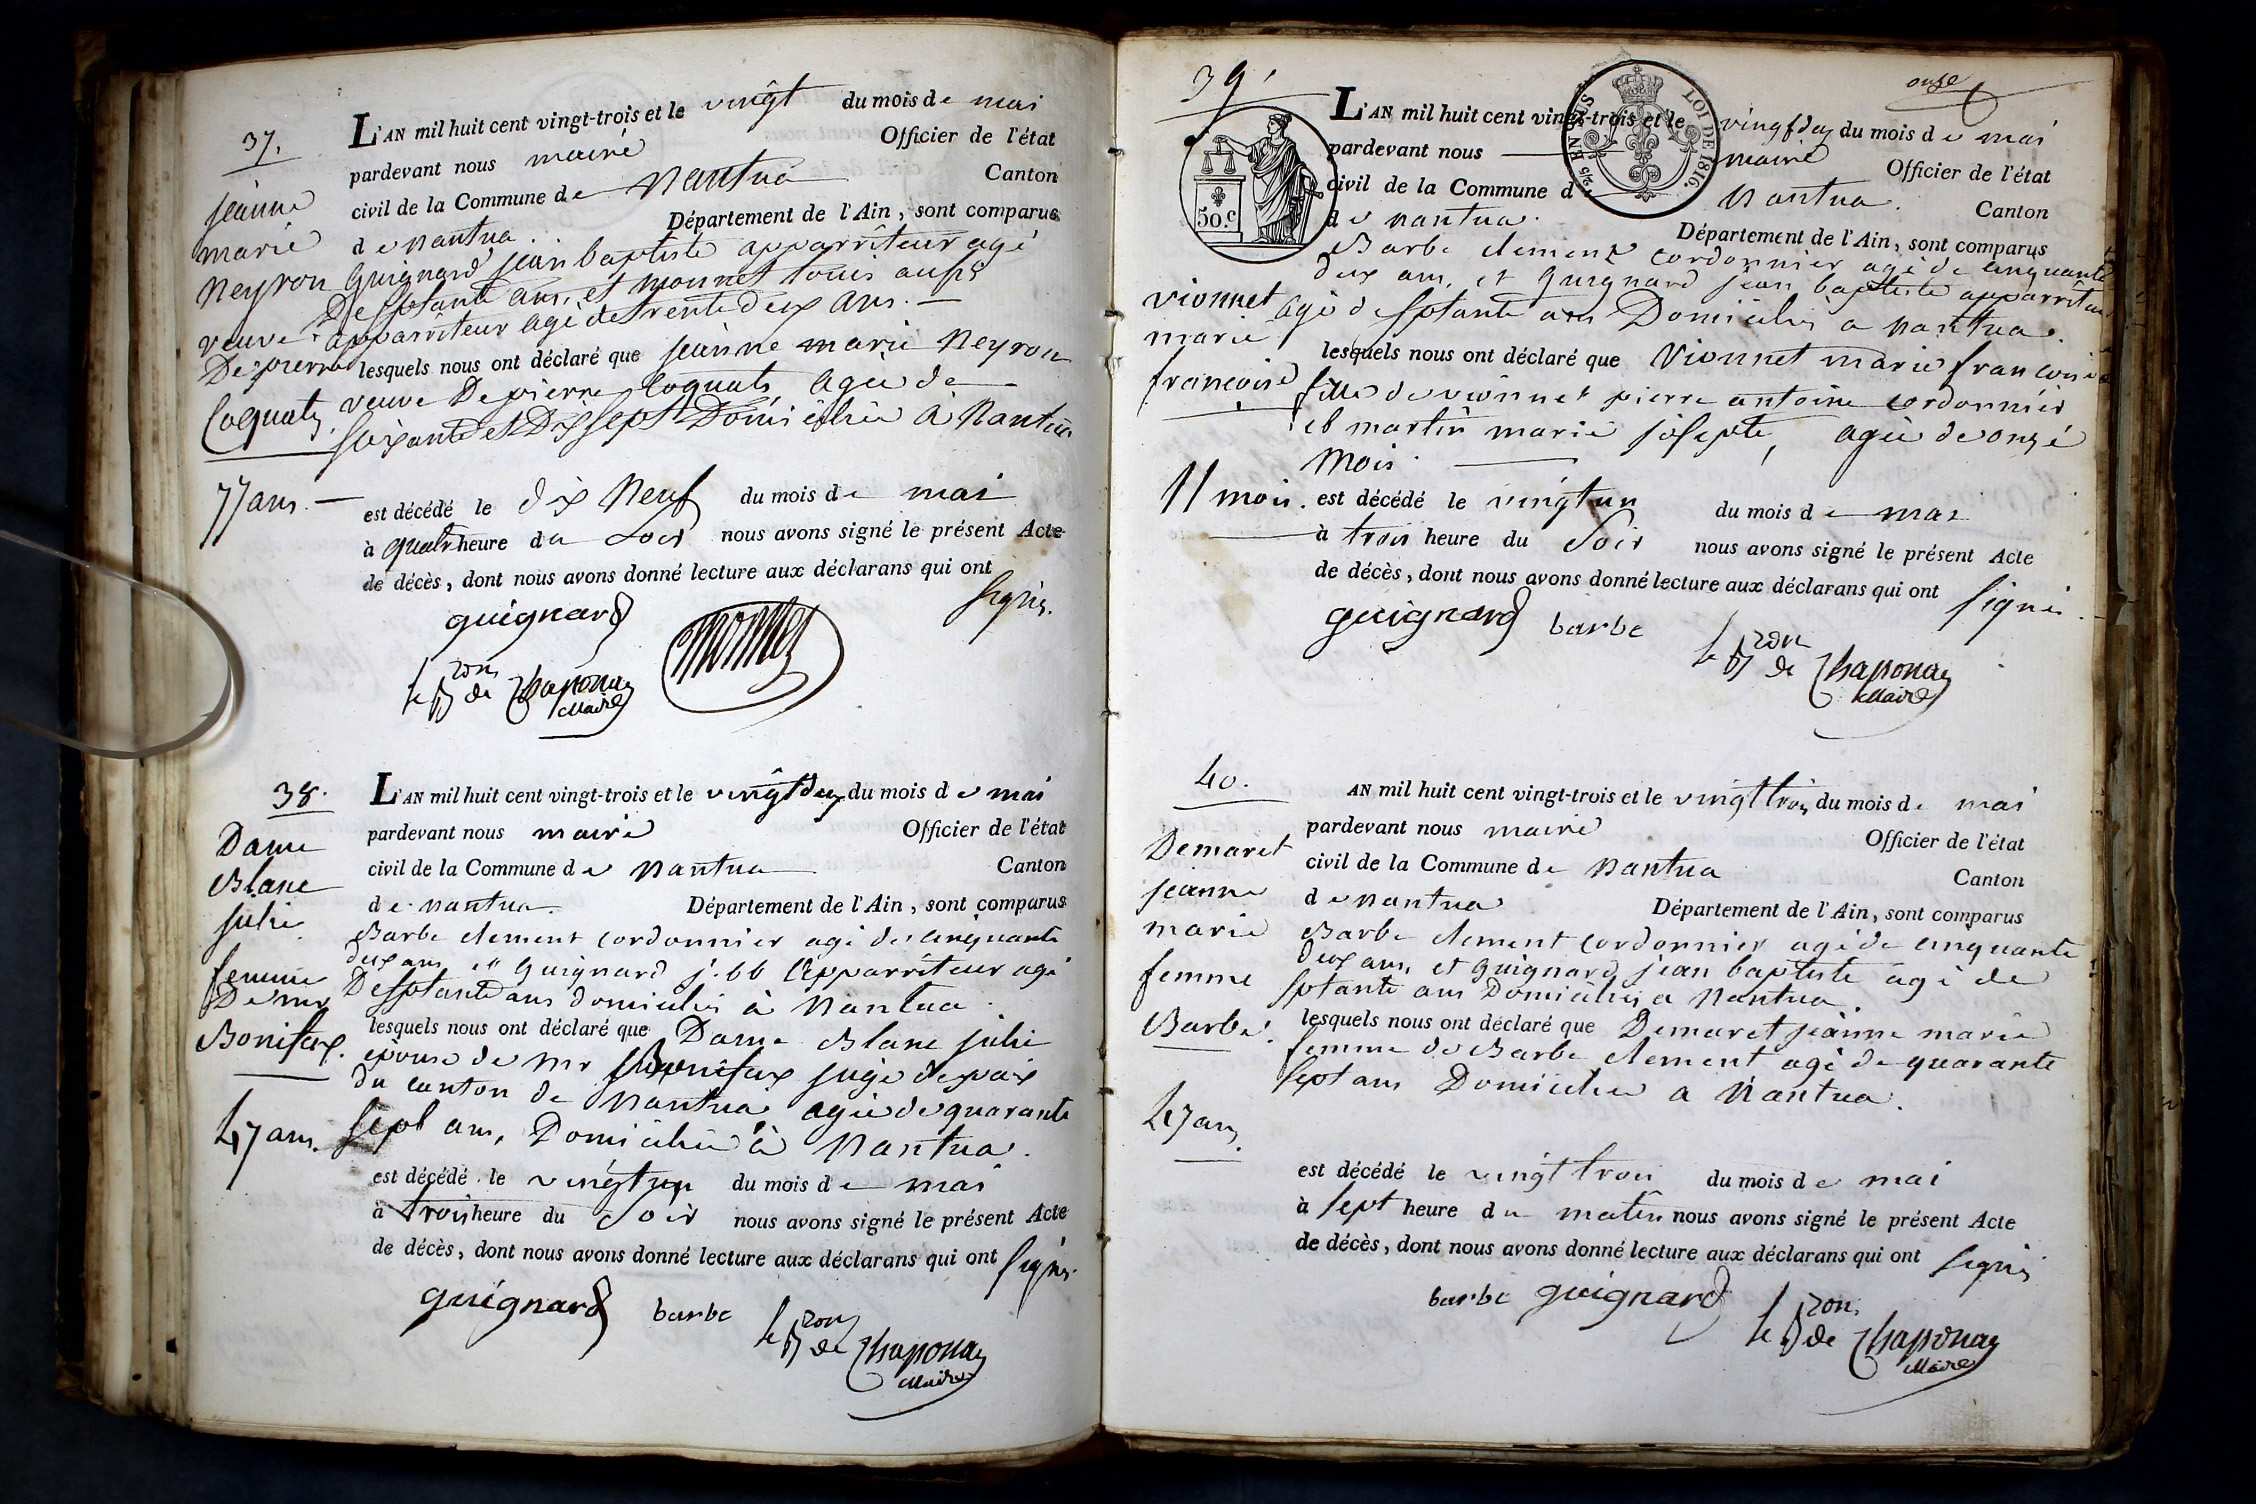 37.
L'AN mil huit cent vingt-trois et le vingt du mois de mai
pardevant nous maire Officier de l'état
civil de la Commune de Nantua Canton
de nantua. Département de l'Ain, sont comparus
Guignard jean baptiste apparriteur agé
De septante ans, et monnet louis aussi
apparriteur agé de trente deux ans. —
lesquels nous ont déclaré que jeanne marie Neyron
veuve De pierre Coquatz agée de
soixante et Dix sept Domicilié à Nantua
est décédé le dix Neuf du mois de mai
à quatre heure du soir nous avons signé le présent Acte
de décès, dont nous avons donné lecture aux déclarans qui ont
signés.
jeanne
marie
Neyron
veuve
De pierre
Coquatz.
77 ans. —
guignard monnet
le Bon de Chaponay
Maire
38.
L'AN mil huit cent vingt-trois et le vingt deux du mois de mai
pardevant nous maire Officier de l'état
civil de la Commune de Nantua Canton
de nantua. Département de l'Ain, sont comparus
Barbe clement cordonnier agé de cinquante
deux ans et Guignard j. bt apparriteur agé
De septante ans domiciliés à Nantua.
lesquels nous ont déclaré que Dame Blanc julie
epouse de mr Bonifax juge de paix
du canton de Nantua agée de quarante
sept ans, Domiciliée à Nantua.
est décédé le vingt un du mois de mai
à trois heure du soir nous avons signé le présent Acte
de décès, dont nous avons donné lecture aux déclarans qui ont signés.
Dame
Blanc
julie
femme
De mr
Bonifax.
47 ans.
guignard barbe
le Bon de Chaponay
Maire
39.
onze
50 c.
EN SUS
LOI DE 1816.
L'AN mil huit cent vingt-trois et le vingt deux du mois de mai
pardevant nous maire Officier de l'état
civil de la Commune d Nantua. Canton
de nantua. Département de l'Ain, sont comparus
Barbe clement cordonnier agé de cinquante
deux ans, et Guignard jean baptiste apparriteur
agé de septante ans Domiciliés a nantua.
lesquels nous ont déclaré que Vionnet marie françoise
fille de vionnet pierre antoine cordonnier
et martin marie josepte, agée de onze
mois.
est décédé le vingt un du mois de mai
à trois heure du soir nous avons signé le présent Acte
de décès, dont nous avons donné lecture aux déclarans qui ont signés
vionnet
marie
françoise
11 mois.
guignard barbe
le Bon de Chaponay
Maire
40.
AN mil huit cent vingt-trois et le vingt trois du mois de mai
pardevant nous maire Officier de l'état
civil de la Commune de Nantua Canton
de nantua Département de l'Ain, sont comparus
Barbe clement cordonnier agé de cinquante
deux ans, et Guignard jean baptiste agé de
septante ans Domiciliés a Nantua.
lesquels nous ont déclaré que Demaret jeanne marie
femme de Barbe clement agé de quarante
sept ans Domiciliée a Nantua.
est décédé le vingt trois du mois de mai
à sept heure du matin nous avons signé le présent Acte
de décès, dont nous avons donné lecture aux déclarans qui ont signés
Demaret
jeanne
marie
femme
Barbe.
47 ans.
barbe guignard
le Bon de Chaponay
Maire